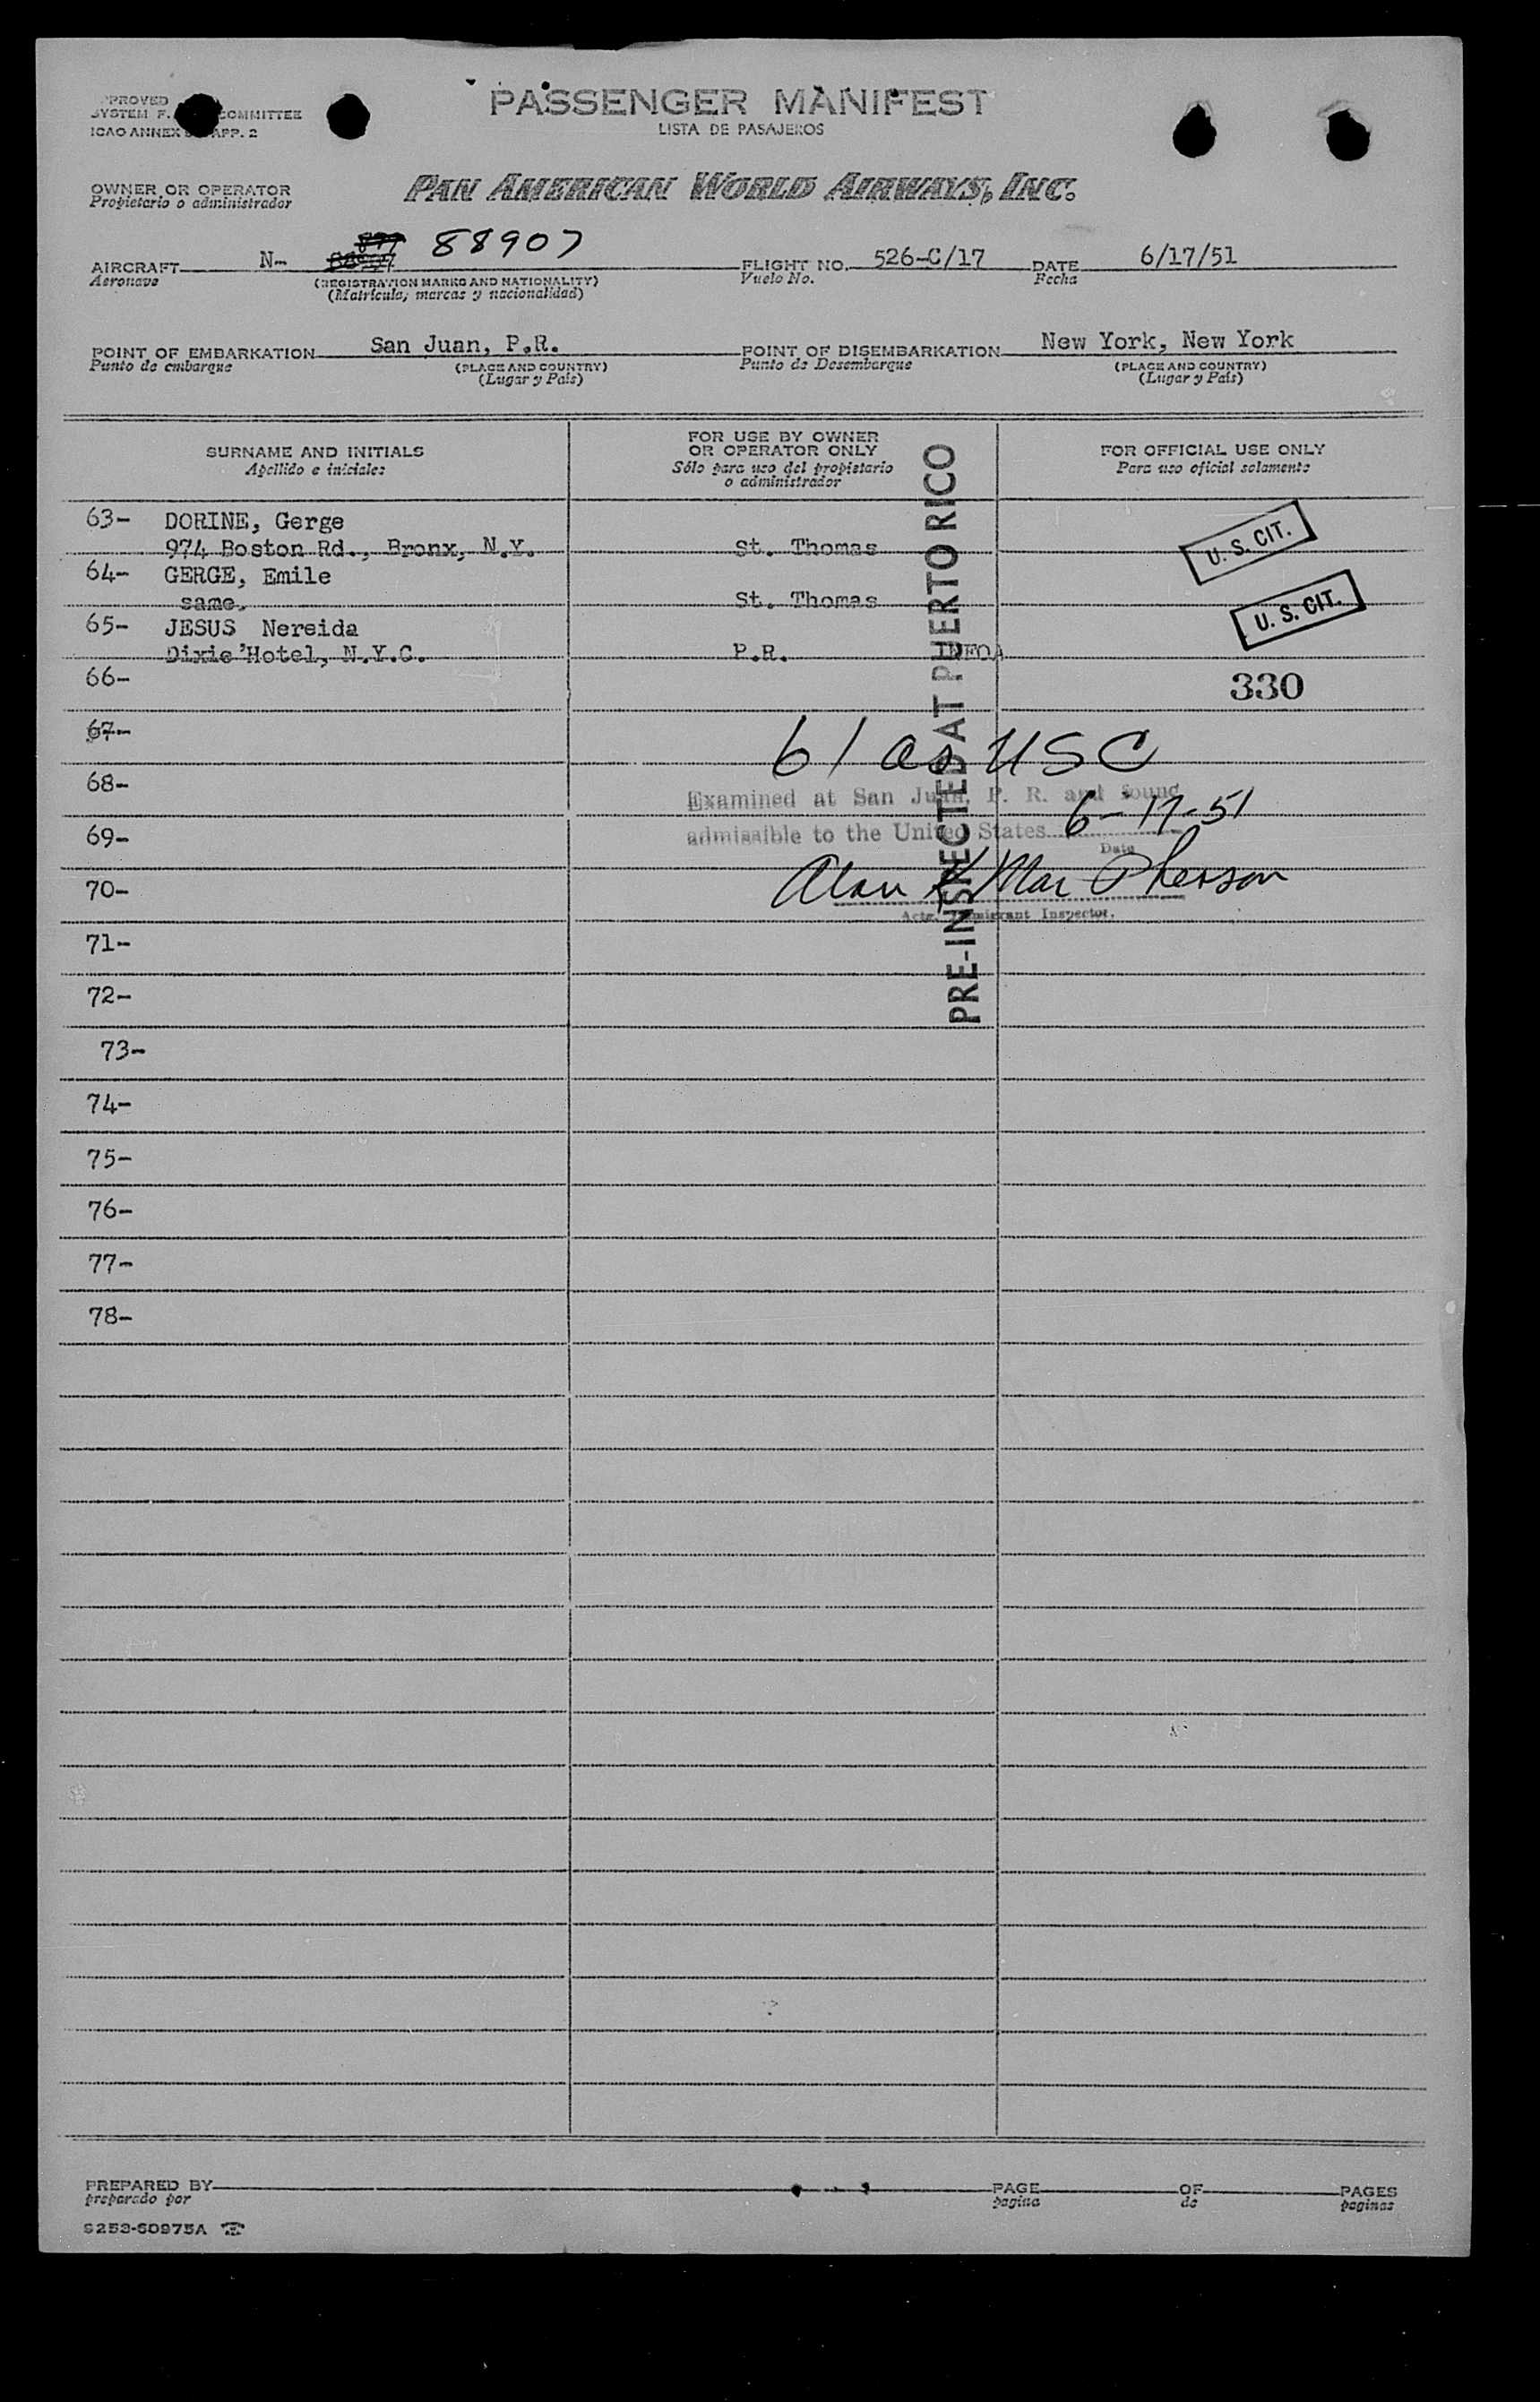 PASSENGER MANIFEST
LISTA DE PASAJEROS
PPROVED
SYSTEM F. COMMITTEE
ICAO ANNEX APP. 2
OWNER OR OPERATOR
Propietario o administrador
PAN AMERICAN WORLD AIRWAYS, INC.
AIRCRAFT N- 88907 FLIGHT NO. 526-C/17 DATE 6/17/51
Aeronave (REGISTRATION MARKS AND NATIONALITY) Vuelo No. Fecha
(Matrícula, marcas y nacionalidad)
POINT OF EMBARKATION San Juan, P.R. POINT OF DISEMBARKATION New York, New York
Punto de embarque (PLACE AND COUNTRY) Punto de Desembarque (PLACE AND COUNTRY)
(Lugar y País) (Lugar y País)
SURNAME AND INITIALS
Apellido e iniciales
FOR USE BY OWNER
OR OPERATOR ONLY
Sólo para uso del propietario
o administrador
FOR OFFICIAL USE ONLY
Para uso oficial solamente
63- DORINE, Gerge
974 Boston Rd., Bronx, N.Y. St. Thomas U. S. CIT.
64- GERGE, Emile
same. St. Thomas U. S. CIT.
65- JESUS Nereida
Dixie'Hotel, N.Y.C. P.R.
66- 330
67-
61 as USC
68-
Examined at San Juan, P. R. and found
admissible to the United States 6-17-51
69-
Date
70- Alan K MacPherson
Actg. Immigrant Inspector.
PRE-INSPECTED AT PUERTO RICO
71-
72-
73-
74-
75-
76-
77-
78-
PREPARED BY PAGE OF PAGES
preparado por pagina de paginas
9253-60975A